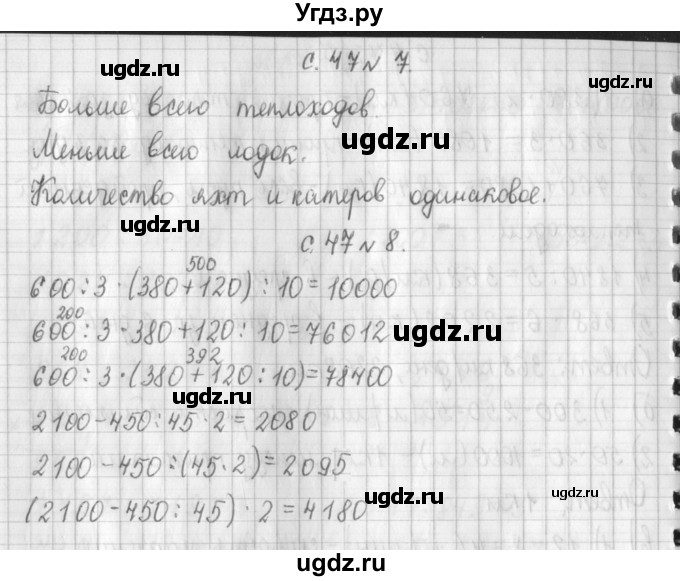 Угдз.ру
с. 47 № 7.
ugdz.ru
ugdz.ru
Больше всего теплоходов.
ugdz.ru
Меньше всего лодок.
Количество яхт и катеров одинаковое.
ugdz.ru
ugdz.ru
с. 47 № 8.
500
600:3·(380+120):10=10000
200
600:3·380+120:10=76012
ugdz.ru
ugdz.ru
200 392
600:3·(380+120:10)=78400
2100-450:45·2=2080
ugdz.ru
2100-450:(45·2)=2095
ugdz.ru
(2100-450:45)·2=4180
ugdz.ru
ugdz.ru